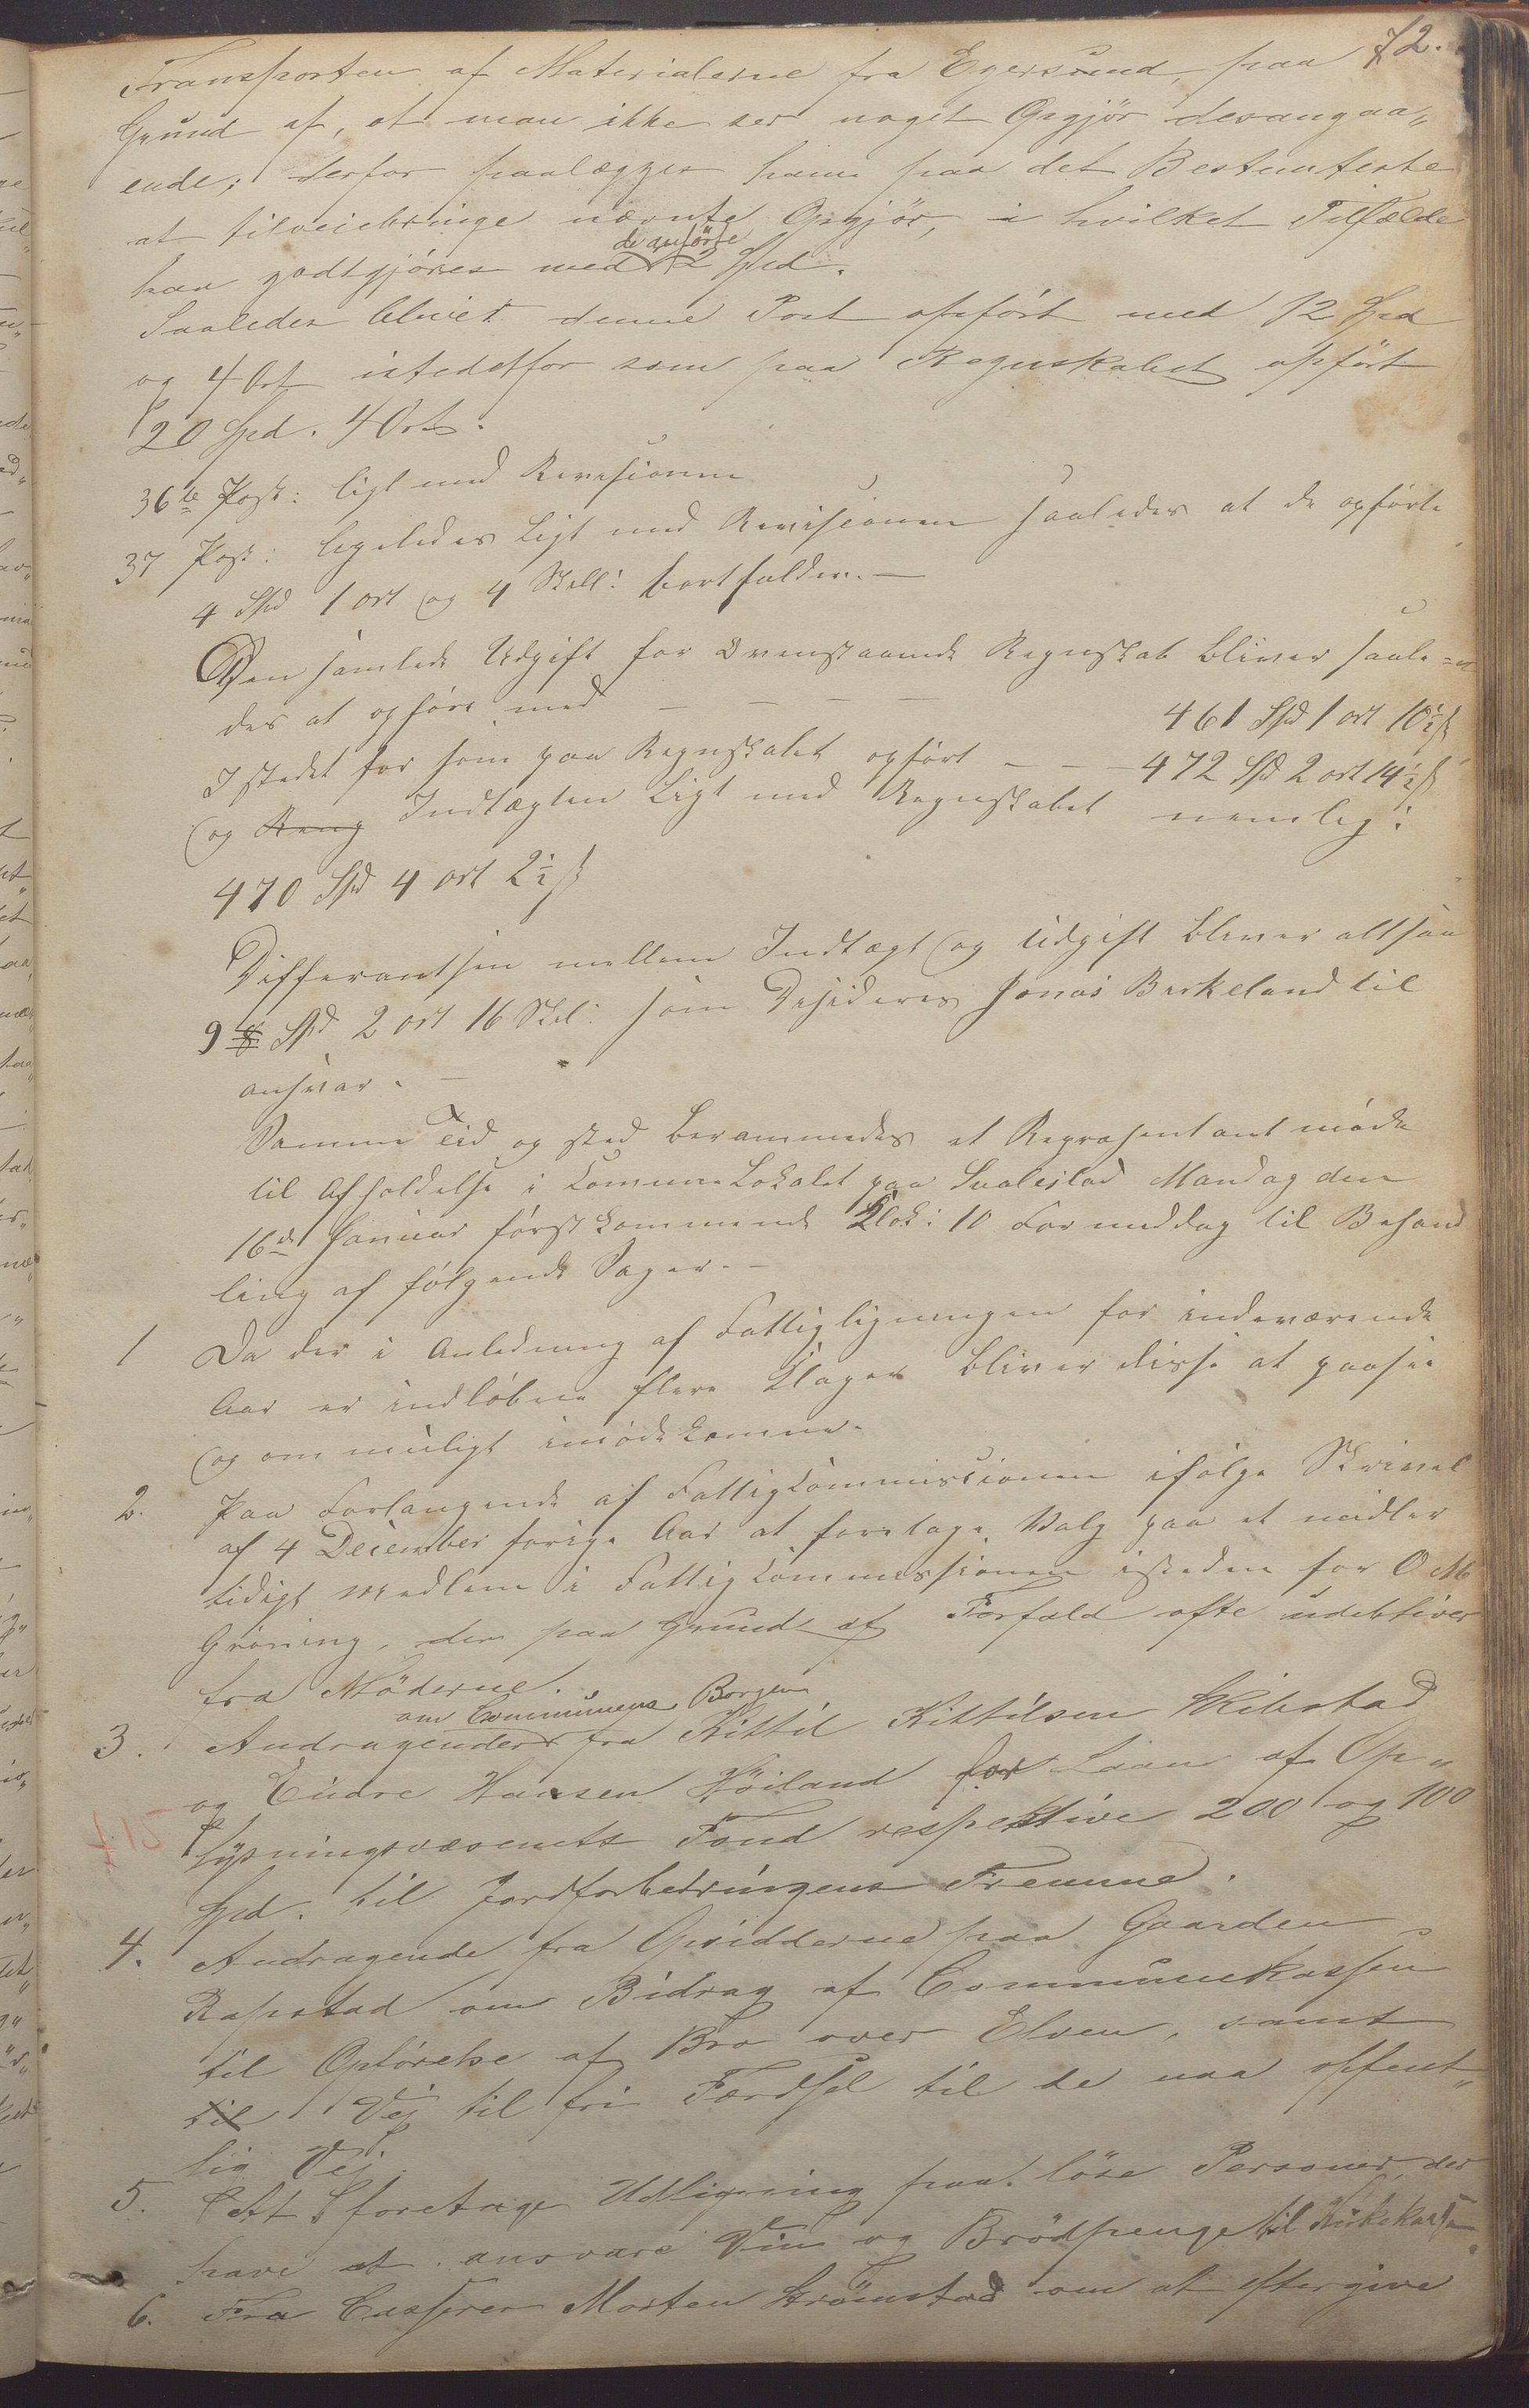 72.
Transporten af Materialerne fra Egersund, paa
Grund af, at man ikke ser noget Opgjör derangaa„
ende; derfor paalægges ham paa det Bestemteste
at tilveiebringe nævnte Opgjör, i hvilket Tilfælde
de anförte
han godtgjöres med 12 Spd.
Saaledes blivet denne Post opfört med 12 Spd
og 4 Ort istedetfor som paa Regnskabet opfört
20 Spd. 4 Ort.
36te Post: ligt med Revisionen
37 Post: ligeledes Ligt med Revisionen saaledes at de opförte
4 Spd 1 ort og 4 Skell: bortfalder. —
Den samlede Udgift for Ovenstaaende Regnskab bliver saale=
des at opföre med — — — — 461 Spd 1 ort 10½ s
I stedet for som paa Regnskabet opfört — — — 472 Spd 2 ort 14½ s
og Reng Indtægten Ligt med Regnskabet nemlig:
470 Spd 4 ort 2½ s
Differantsen mellem Indtægt og Udgift bliver altsaa
9 8 Spd 2 ort 16 Skel: som Desideres Jonas Birkeland til
ansvar. —
Samme Tid og sted berammedes et Repræsentantmöde
til Afholdelse i Communelokalet paa Svalestad Mandag den
16de Januar förstkommende Klok: 10 Formiddag til Behand
ling af fölgende Sager. —
1 Da der i Anledning af Fattigligningen for indeværende
Aar er indlöbne flere Klager bliver disse at paasee
og om muligt imödekomme.
2. Paa Forlangende af Fattigkommissionen ifölge Skrivel
af 4 December forige Aar at foretage Valg paa et midler
tidigt Medlem i Fattigkommissionen isteden for O M
Gröning, der paa Grund af Forfald ofte udebliver
fra Möderne.
om Communens Borgen
3. Andragender fra Kittil Kittilsen Skibstad
og Eidre Hansen Höiland for Laan af Op„
lysningsvæsenets Fond respektive 200 og 100
Spd. til Jordforbedringens Fremme.
4. Andragende fra Opsidderne paa Gaarden
Rapstad om Bidrag af Communekassen
til Opförelse af Bro over Elven, samt
til Vej til fri Færdsel til de naa offent„
lig Vej.
5. At foretage Udligning paa löse Personer der
have at ansvare Viin og Brödpenge til Kirkekassen.
6. Fra Casserer Morten Strömstad om at eftergive